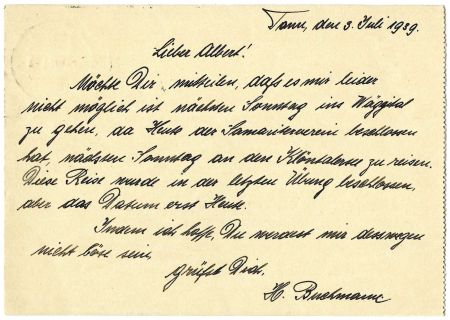 Tann, den 3. Juli 1939.
Lieber Albert!
Möchte Dir mitteilen, dass es mir leider
nicht möglich ist nächsten Sonntag ins Wäggital
zu gehen, da Heute der Samariterverein beschlossen
hat, nächsten Sonntag an den Klöntalersee zu reisen.
Diese Reise wurde in der letzten Übung beschlossen,
aber das Datum erst Heute.
Indem ich hoffe, Du werdest mir deswegen
nicht böse sein
grüsst Dich
H. Buchmann